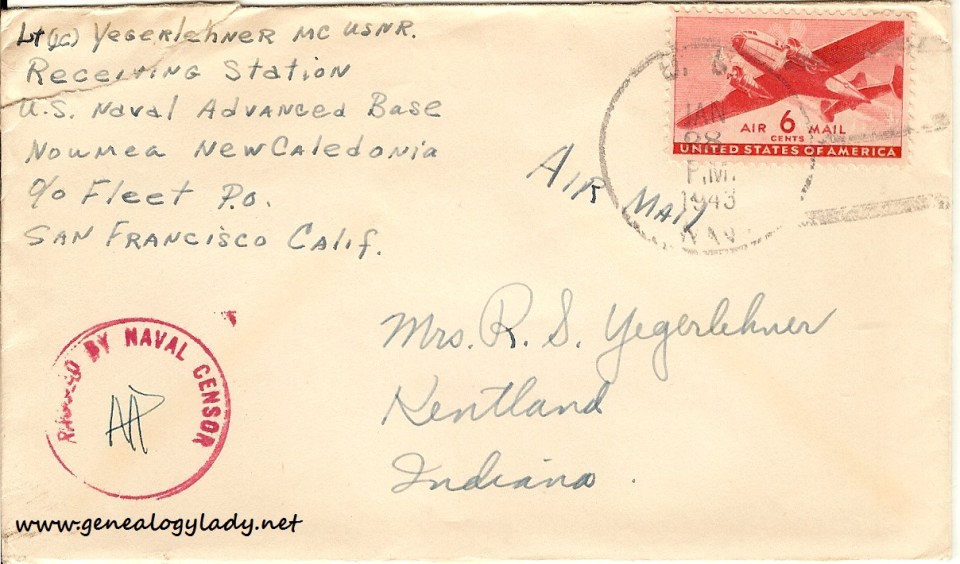 Lt(jg) Yegerlehner MC USNR.
Receiving Station
U.S. Naval Advanced Base
Noumea New Caledonia
c/o Fleet P.O.
San Francisco Calif.
Air Mail
AIR 6 MAIL
CENTS
UNITED STATES OF AMERICA
U. S.
JAN
28
P.M.
1943
NAVY
Mrs. R. S. Yegerlehner
Kentland
Indiana.
PASSED BY NAVAL CENSOR
www.genealogylady.net